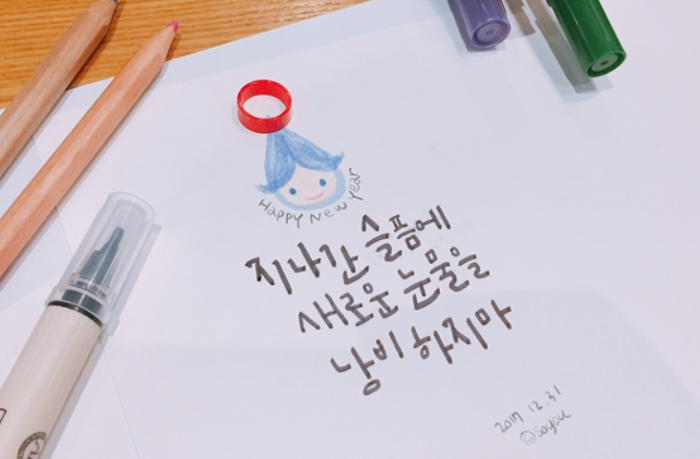 HAPPY New year
지나간 슬픔에
새로운 눈물을
낭비 하지마
2017. 12. 31
@soyou